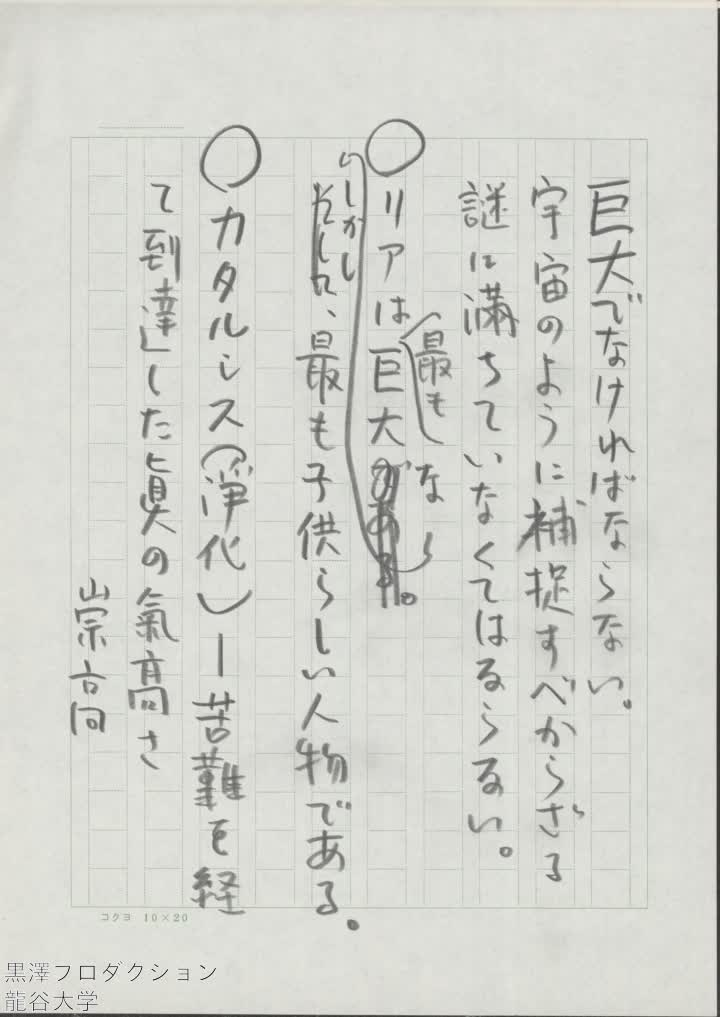 巨大でなければならない。
宇宙のように補捉すべからざる
謎に満ちていなくてはならない。
最も
○リアは巨大な
しかし
、最も子供らしい人物である。
○カタルシス(浄化)ー苦難を経
て到達した真の氣高さ
崇高
コクヨ 10×20
黒澤プロダクション
龍谷大学